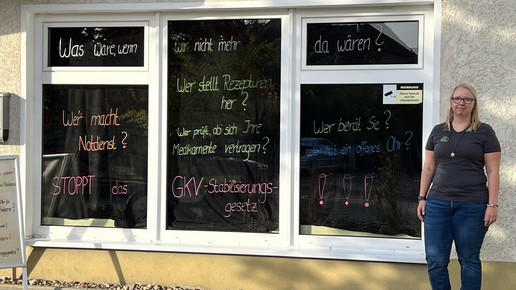 Was wäre, wenn wir nicht mehr da wären?
Wer macht
Notdienst?
STOPPT das
Wer stellt Rezepturen
her?
Wer prüft, ob sich Ihre
Medikamente vertragen?
GKV-Stabilisierungs-
gesetz
Wer berät Sie?
Wer hat ein offenes Ohr?
! ! !
WARNUNG